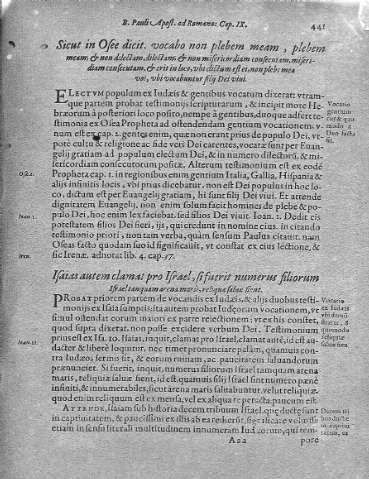 B. Pauli Apost. ad Romanos Cap. IX. 441
Sicut in Osee dicit. vocabo non plebem meam, plebem
meam: & non dilectam, dilectam: & non misericordiam consecutam, miseri-
diam consecutam, & erit in loco, vbi dictum est ei, non plebs mea
vos, vbi vocabuntur filij Dei viui.
ELECTVM populum ex Iudæis & gentibus vocatum dixerat: vtram-
que partem probat testimonijs scripturarum, & incipit more He-
bræorum à posteriori loco posito, nempe à gentibus, de quo adfert te-
stimonia ex Osea Propheta ad ostendendam gentium vocationem. v-
num est ex cap. 2. gentes enim, quæ non erant prius de populo Dei, vt-
pote cultu & religione ac fide veri Dei carentes, vocatæ sunt per Euan-
gelij gratiam ad populum electum Dei, & in numero dilectorum, & mi-
sericordiam consecutorum positæ. Alterum testimonium est ex eodē
Propheta cap. 1. in regionibus enim gentium Italia, Gallia, Hispania &
alijs infinitis locis, vbi prius dicebatur, non est Dei populus in hoc lo-
co, dictum est per Euangelij gratiam, hi sunt filij Dei viui. Et attende
dignitatem Euangelij, non enim solum facit homines de plebe & po-
pulo Dei, hoc enim lex faciebat: sed filios Dei viui. Ioan. 1. Dedit eis
potestatem filios Dei fieri, ijs, qui credunt in nomine eius. in citando
testimonio priori, non tam verba, quàm sensum Paulus citauit. nam
Oseas facto quodam suo id significauit, vt constat ex eius lectione, &
sic Irenæ. adnotat lib. 4. cap. 37.
Isaias autem clamat pro Israel, si fuerit numerus filiorum
Israel tanquam arena maris, reliquiæ saluæ fient.
PROBAT priorem partem de vocandis ex Iudæis, & alijs duobus testi-
monijs ex Isaia sumptis: ita autem probat Iudæorum vocationem, vt
simul ostendat eorum maiori ex parte reiectionem:
quod supra dixerat. non posse excidere verbum Dei. Testimonium
prius est ex Isa. 10. Isaias, inquit, clamat pro Israel, clamat autē, id est au-
dacter & liberè loquitur. nec timet pronunciare palam, quamuis con-
tra Iudæos sermo sit, & eorum ruinam, ac paucitatem saluandorum
prænunciet. Si fuerit, inquit, numerus filiorum Israel tamquam arena
maris, reliquiæ saluæ fient, id est, quamuis filij Israel sint numero pænè
infiniti, & innumerabiles, sicut arena maris, saluabuntur, velut reliquiæ.
quod enim reliquum est ex mensa, vel ex aliqua re peracta, paucum est.
ATTENDE, Isaiam sub historia decem tribuum Israel, quæ ductæ sunt
in captiuitatem, & paucissimi ex illis ab ea redierunt, significasse
etiam in sensu literali multitudinem innumeram Iudæorum, qui tem-
Aaa pore